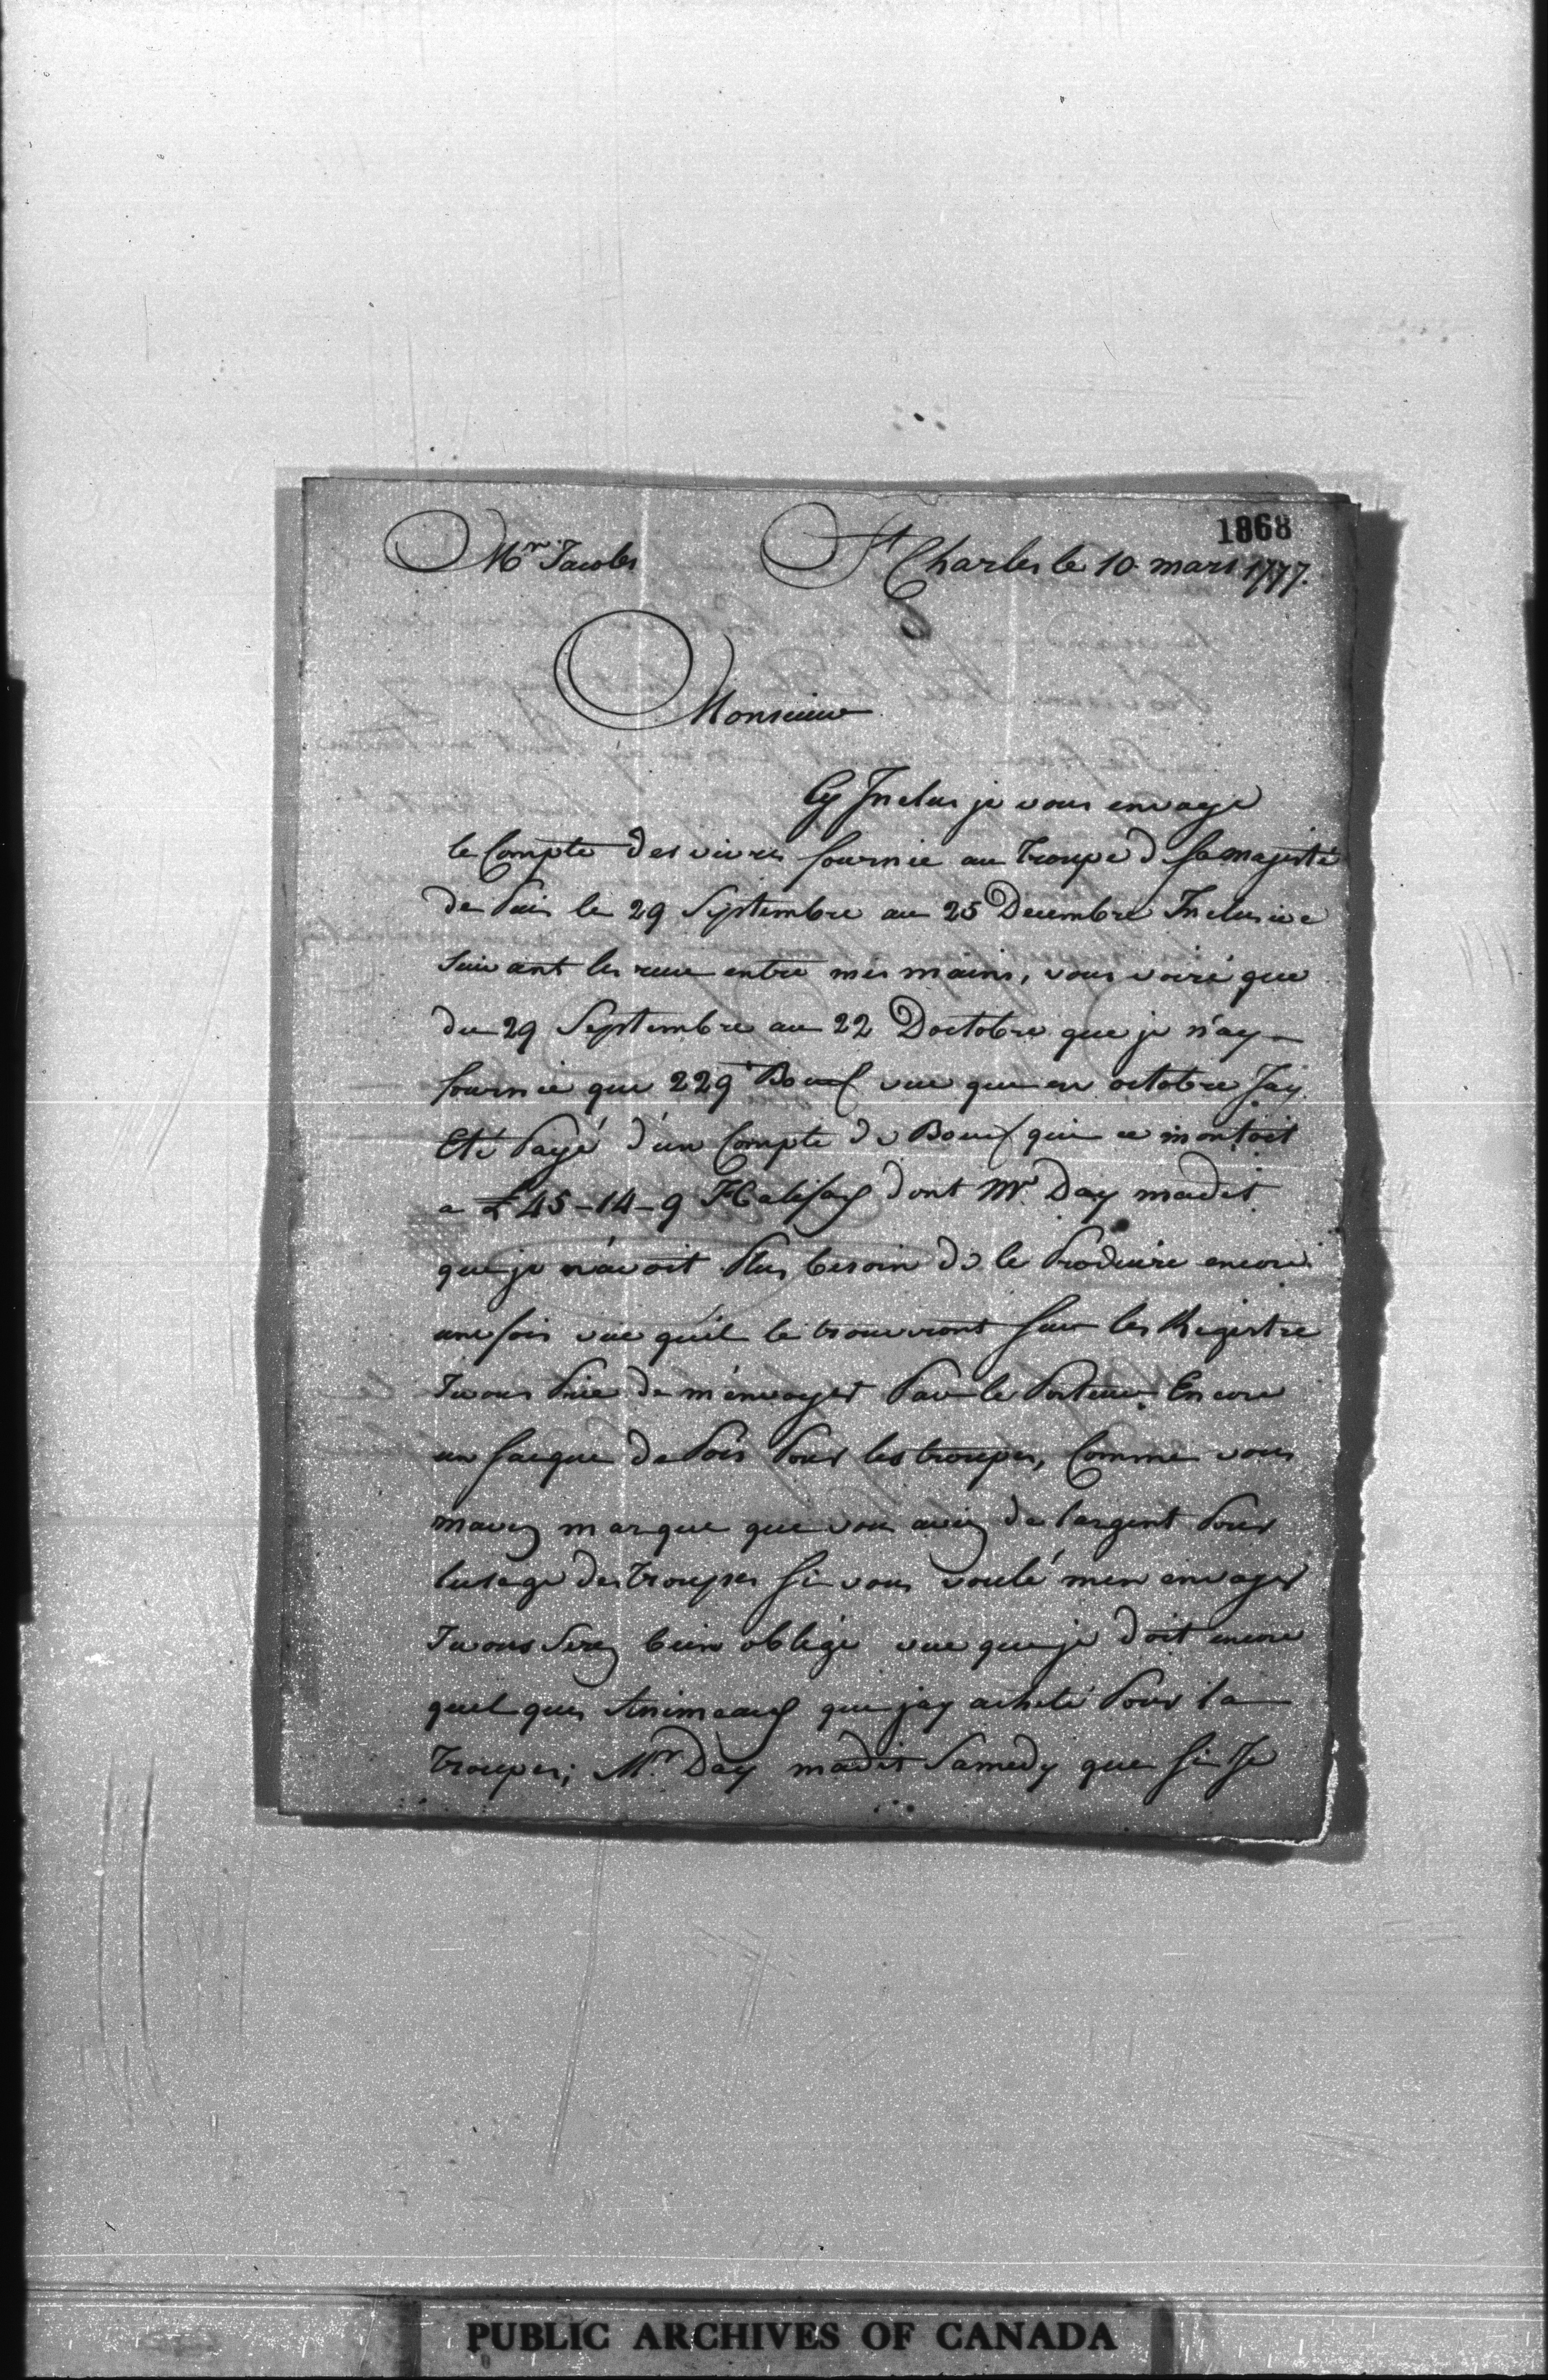 1868
Mr. Jacobs St Charles le 10 mars 1777.
Monsieur
Cy Inclus je vous envoye
le Compte des vivres fournie au Troupe d Sa majesté
de Puis le 29 Septembre au 25 Decembre Inclusive
suivant les recue entre mes mains, vous voiré que
du 29 Septembre au 22 Doctobre que je n'ay
fournie que 229 Bouef vue que en octobre Jay
Eté Payé d'un Compte de Bouef qui ce montoit
a £45-14-9 Halifax dont Mr. Day madit
que je n'avoit Plus besoin de le Produire encore
une fois vue quil le trouveront Sur les Registre
Je vous Prie de m'envoyer Par le Porteur Encore
un Sacque de Pois Pour les troupes, Comme vous
mavez marque que vous aviez de largent Pour
lusage des Troupes Si vous voulé men envoyer
Je vous Serez bien obligé vue que je doit encore
quelques Animeaux que jay acheté Pour la
Troupes; Mr. Day madit Samedy que Si Je
PUBLIC ARCHIVES OF CANADA